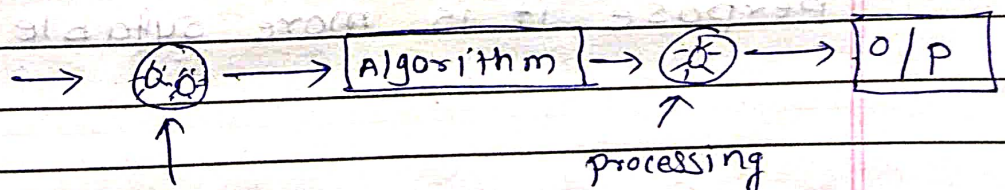 Algorithm O/P
processing